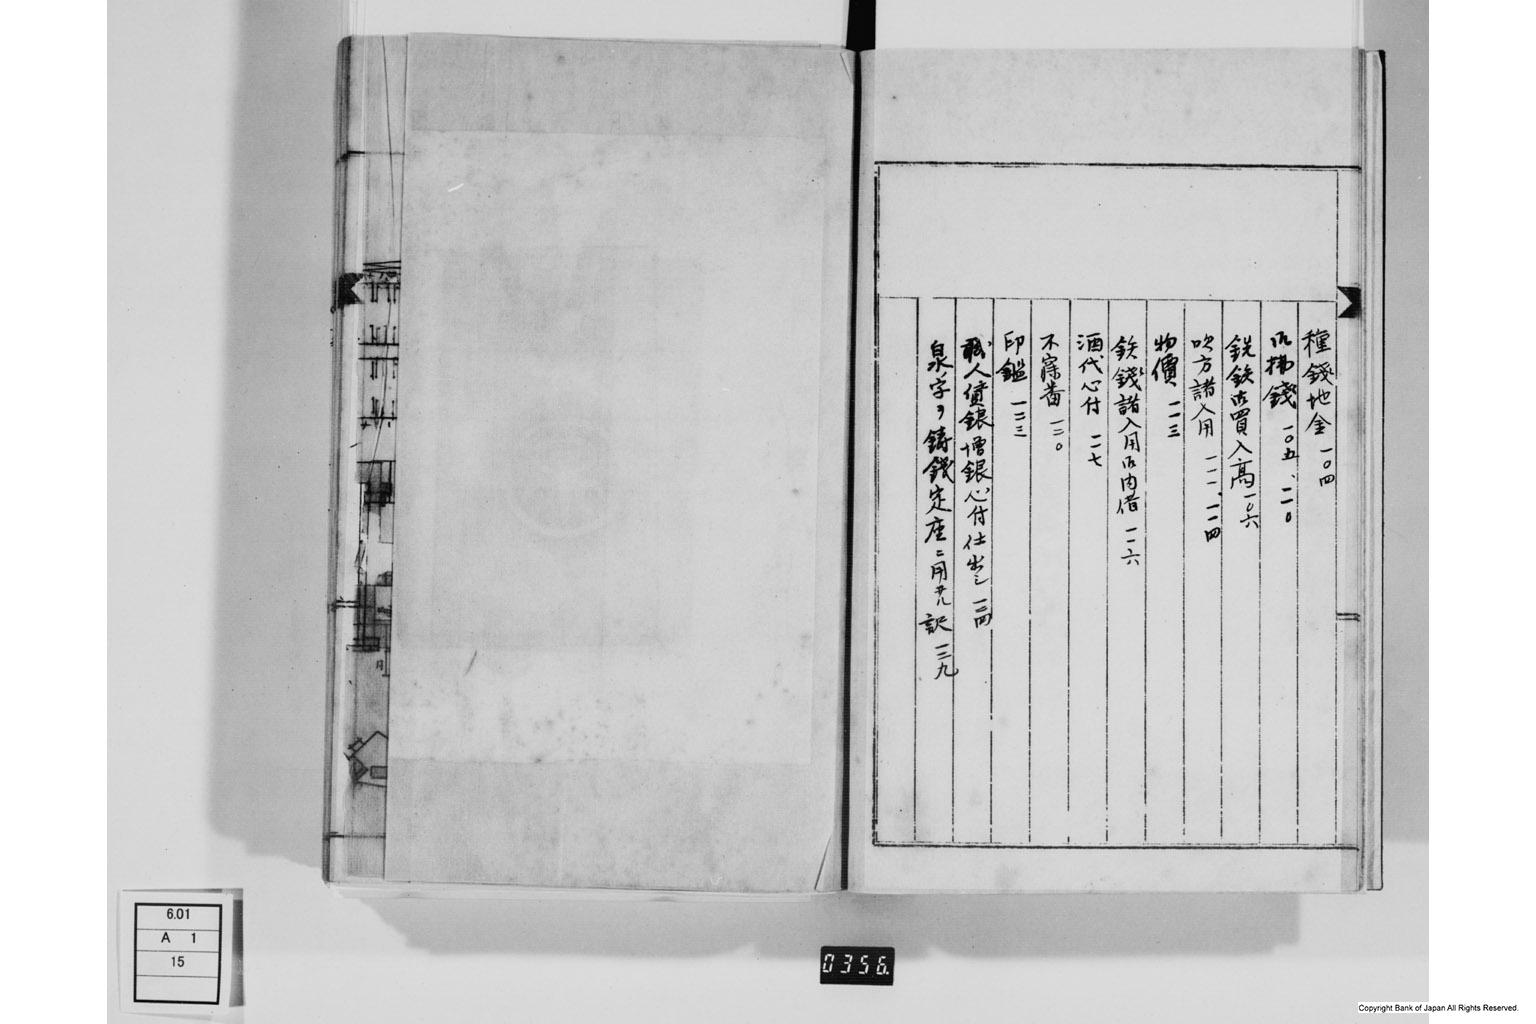 種錢地金 一〇四
御拂錢 一〇五、一一〇
銑鉄御買入高 一〇六
吹方諸入用 一一一、一一四
物價 一一三
鉄錢諸入用御内借 一一六
酒代心付 一一七
不寐番 一二〇
印鑑 一二三
職人償銀増銀心付仕出シ 一二四
泉字ヲ鋳錢定座ニ用ヰル訳 一二九
6.01
A 1
15
0356.
Copyright Bank of Japan All Rights Reserved.